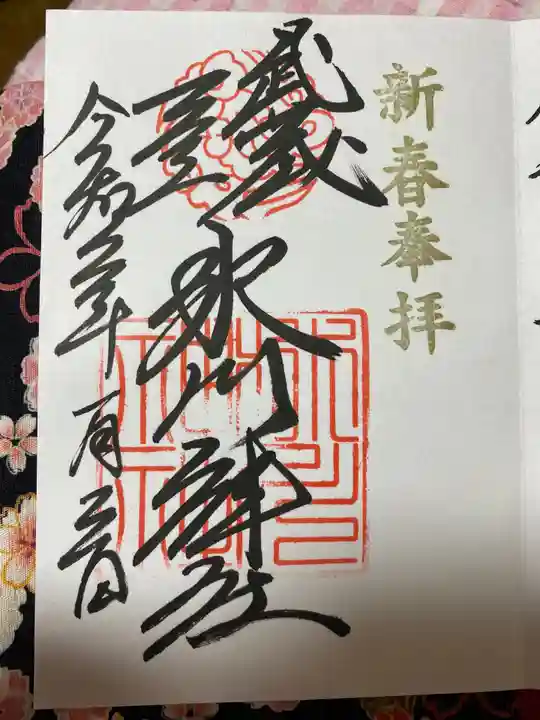 新春奉拝
武蔵
一宮
氷川神社
令和六年一月三日